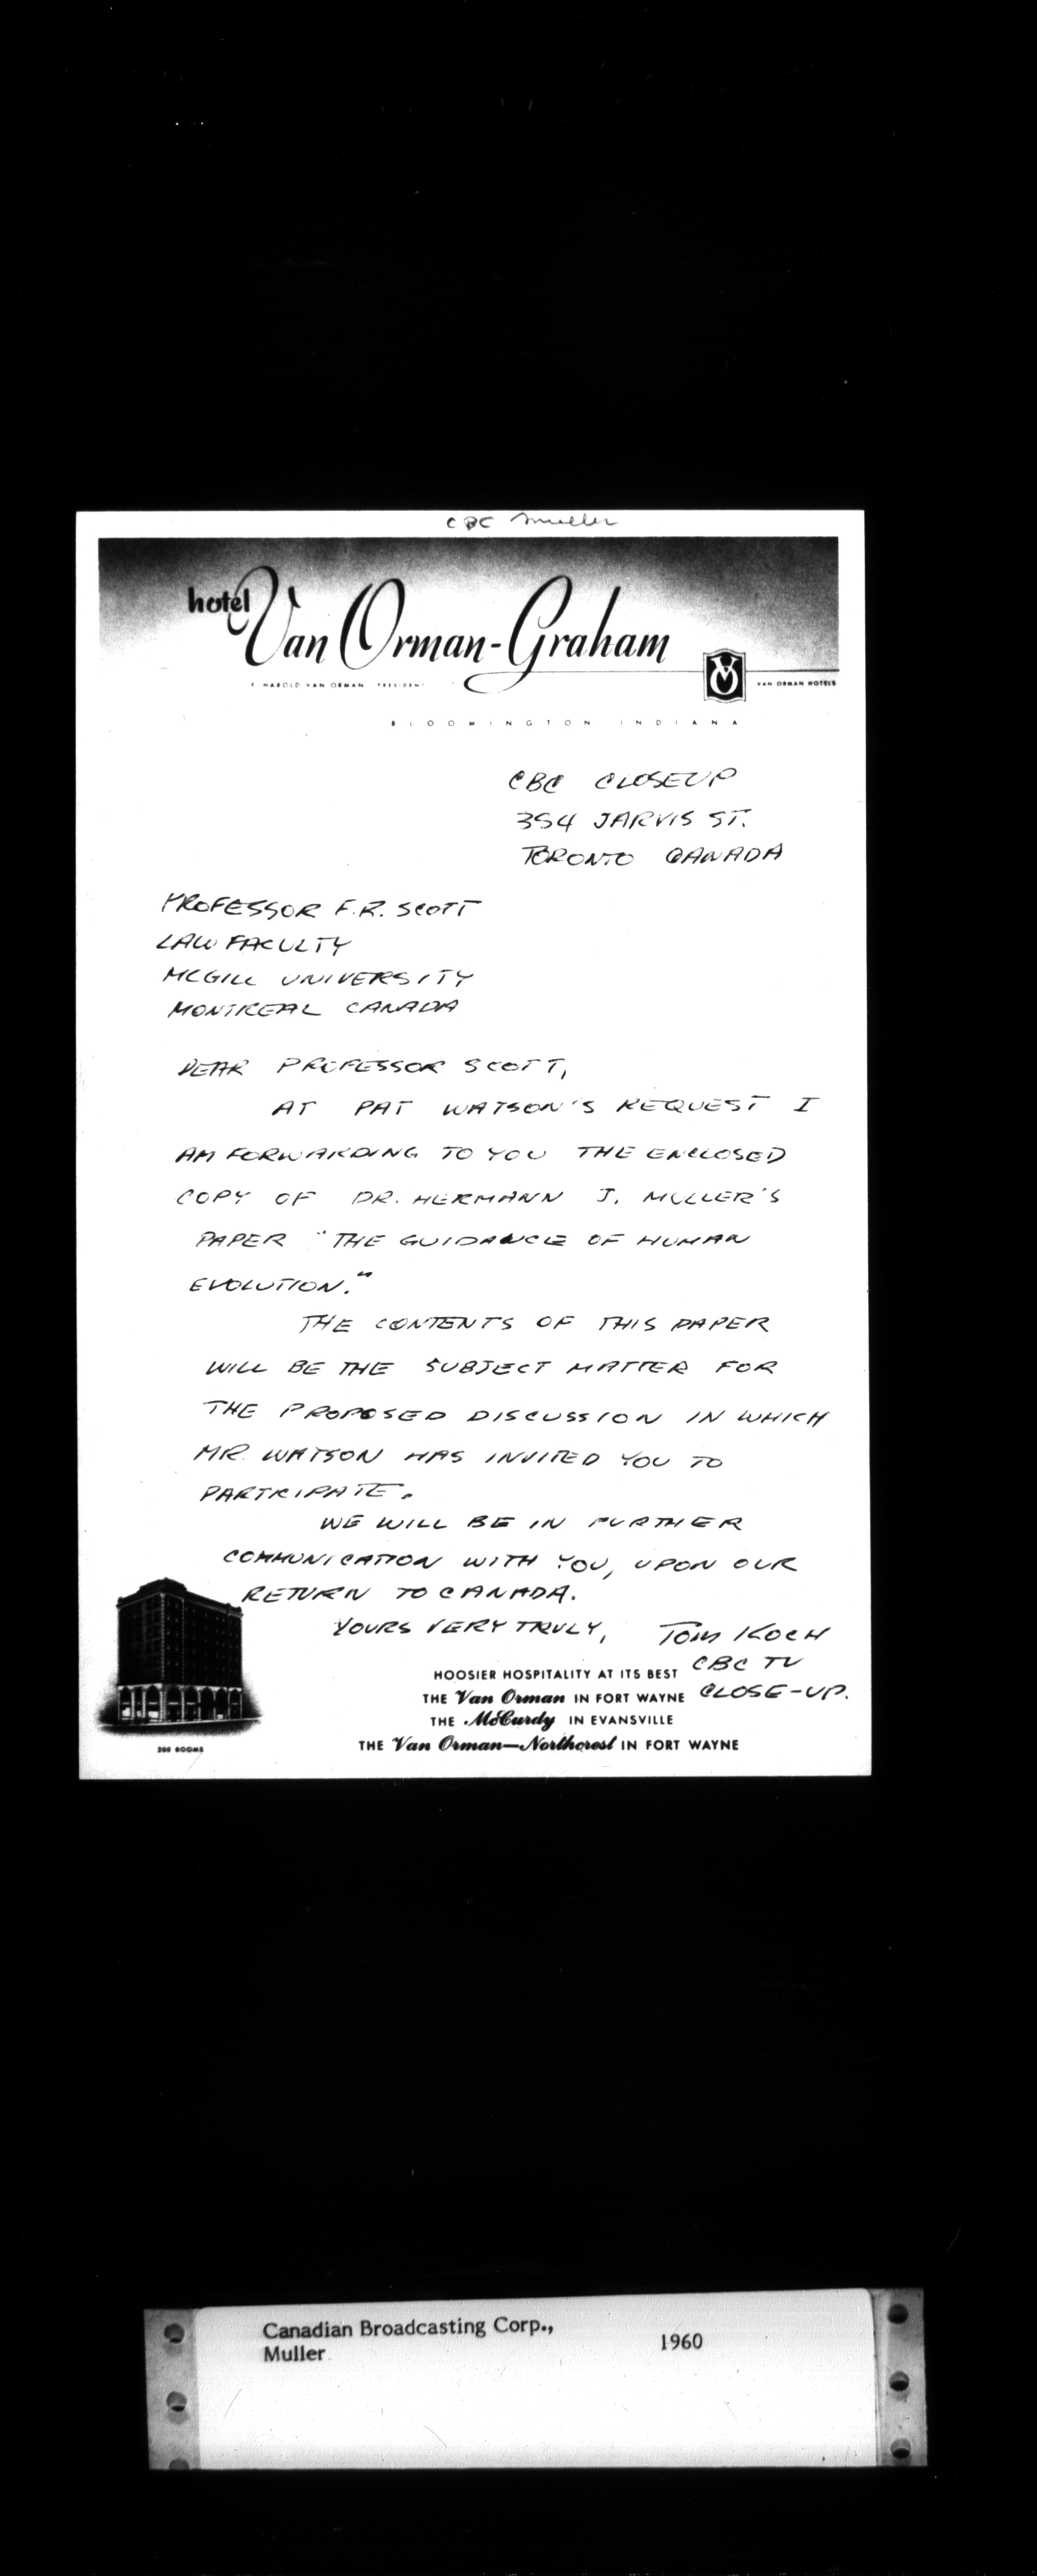 CBC Muller
hotel Van Orman-Graham
F. HAROLD VAN ORMAN PRESIDENT
VAN ORMAN HOTELS
BLOOMINGTON INDIANA
CBC CLOSEUP
354 JARVIS ST.
TORONTO CANADA
PROFESSOR F.R. SCOTT
LAW FACULTY
MCGILL UNIVERSITY
MONTREAL CANADA
DEAR PROFESSOR SCOTT,
AT PAT WATSON'S REQUEST I
AM FORWARDING TO YOU THE ENCLOSED
COPY OF DR. HERMANN J. MULLER'S
PAPER "THE GUIDANCE OF HUMAN
EVOLUTION."
THE CONTENTS OF THIS PAPER
WILL BE THE SUBJECT MATTER FOR
THE PROPOSED DISCUSSION IN WHICH
MR. WATSON HAS INVITED YOU TO
PARTICIPATE.
WE WILL BE IN FURTHER
COMMUNICATION WITH YOU, UPON OUR
RETURN TO CANADA.
YOURS VERY TRULY, TOM KOCH
CBC TV
CLOSE-UP.
HOOSIER HOSPITALITY AT ITS BEST
THE Van Orman IN FORT WAYNE
THE McCurdy IN EVANSVILLE
THE Van Orman—Northcrest IN FORT WAYNE
200 ROOMS
Canadian Broadcasting Corp.,
Muller
1960